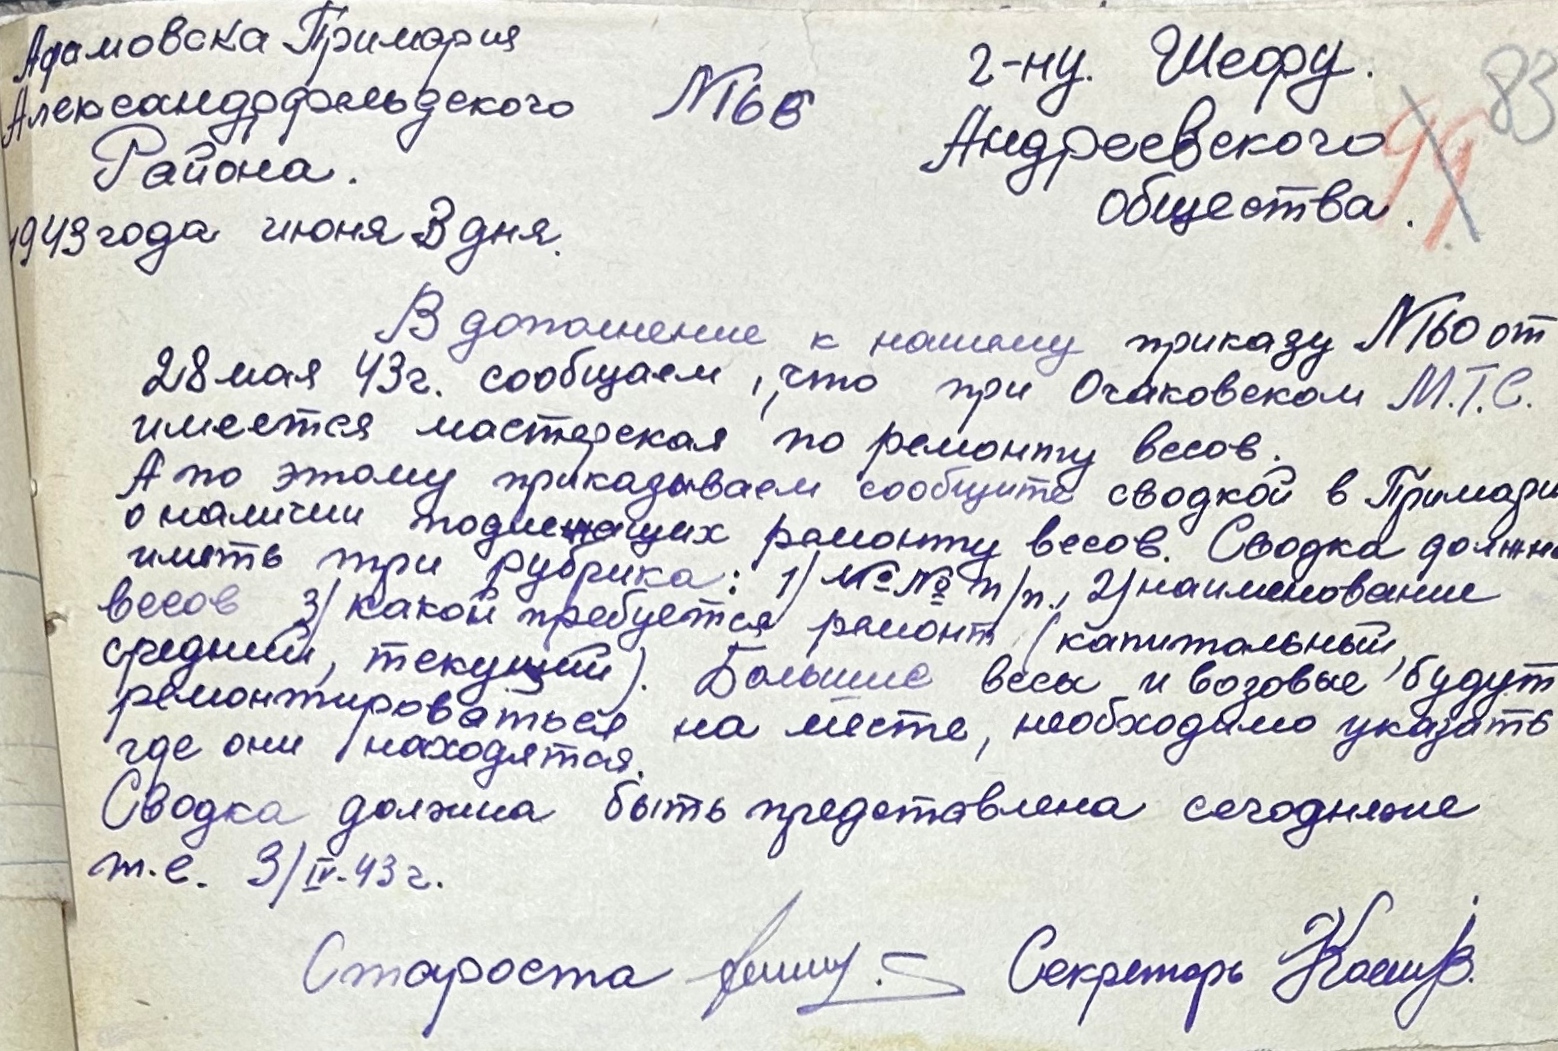 Адамовска Примария
Александрфельдского
Района.
1943 года июня 3 дня.
№66
г-ну. Шефу.
Андреевского
общества.
99
83
В дополнение к нашему приказу №60 от
28 мая 43 г. сообщаем, что при Очаковском М.Т.С.
имеется мастерская по ремонту весов.
А по этому приказываем сообщите сводкой в Примари
о наличии подлежащих ремонту весов. Сводка должна
иметь три рубрика: 1/ №№ п/п., 2/ наименование
весов 3/ какой требуется ремонт (капитальный,
средний, текущий). Большие весы и возовые будут
ремонтироваться на месте, необходимо указать
где они находятся.
Сводка должна быть представлена сегодняже
т.е. 3/IV-43 г.
Староста
Секретарь